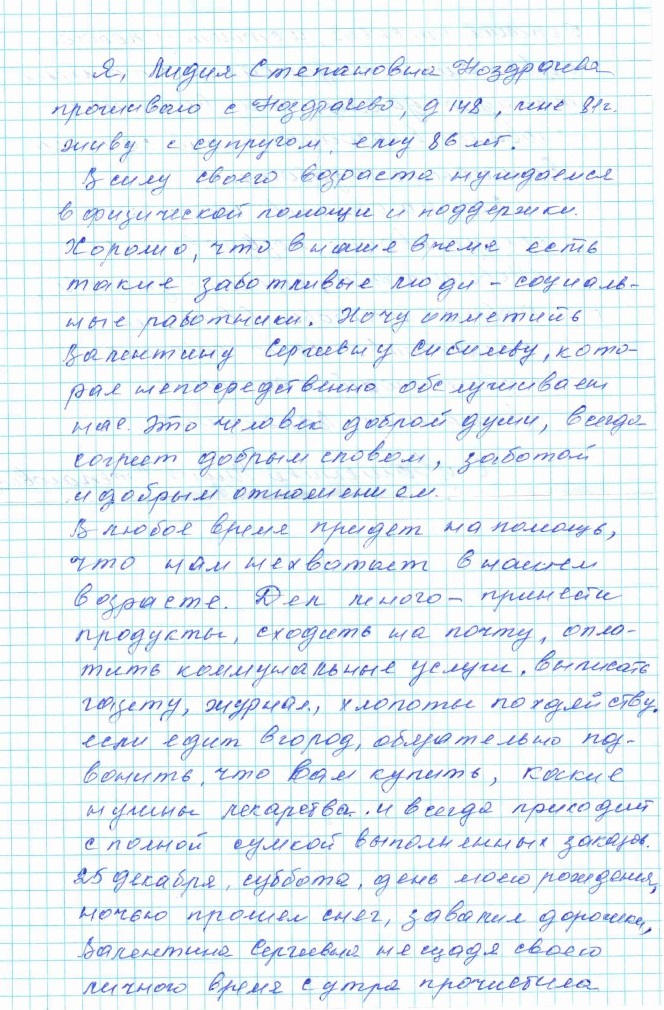 Я, Лидия Степановна Ноздрачева
проживаю с Ноздрачево, д 148, мне 81г.
живу с супругом, ему 86 лет.
В силу своего возраста нуждаемся
в физической помощи и поддержки.
Хорошо, что в наше время есть
такие заботливые люди - социаль-
ные работники. Хочу отметить
Валентину Сергеевну Сибилеву, кото-
рая непосредственно обслуживает
нас. Это человек доброй души, всегда
согреет добрым словом, заботой
и добрым отношением.
В любое время придет на помощь,
что нам нехватает в нашем
возрасте. Дел много - принести
продукты, сходить на почту, опла-
тить коммунальные услуги, выписать
газету, журнал, хлопоты по хозяйству.
если едит в город, обязательно поз-
вонить, что Вам купить, какие
нужны лекарства. и всегда приходит
с полной сумкой выполненных заказов.
25 декабря, суббота, день моего рождения,
ночью прошел снег, завалил дорожки,
Валентина Сергеевна не щадя своего
личного время с утра прочистила